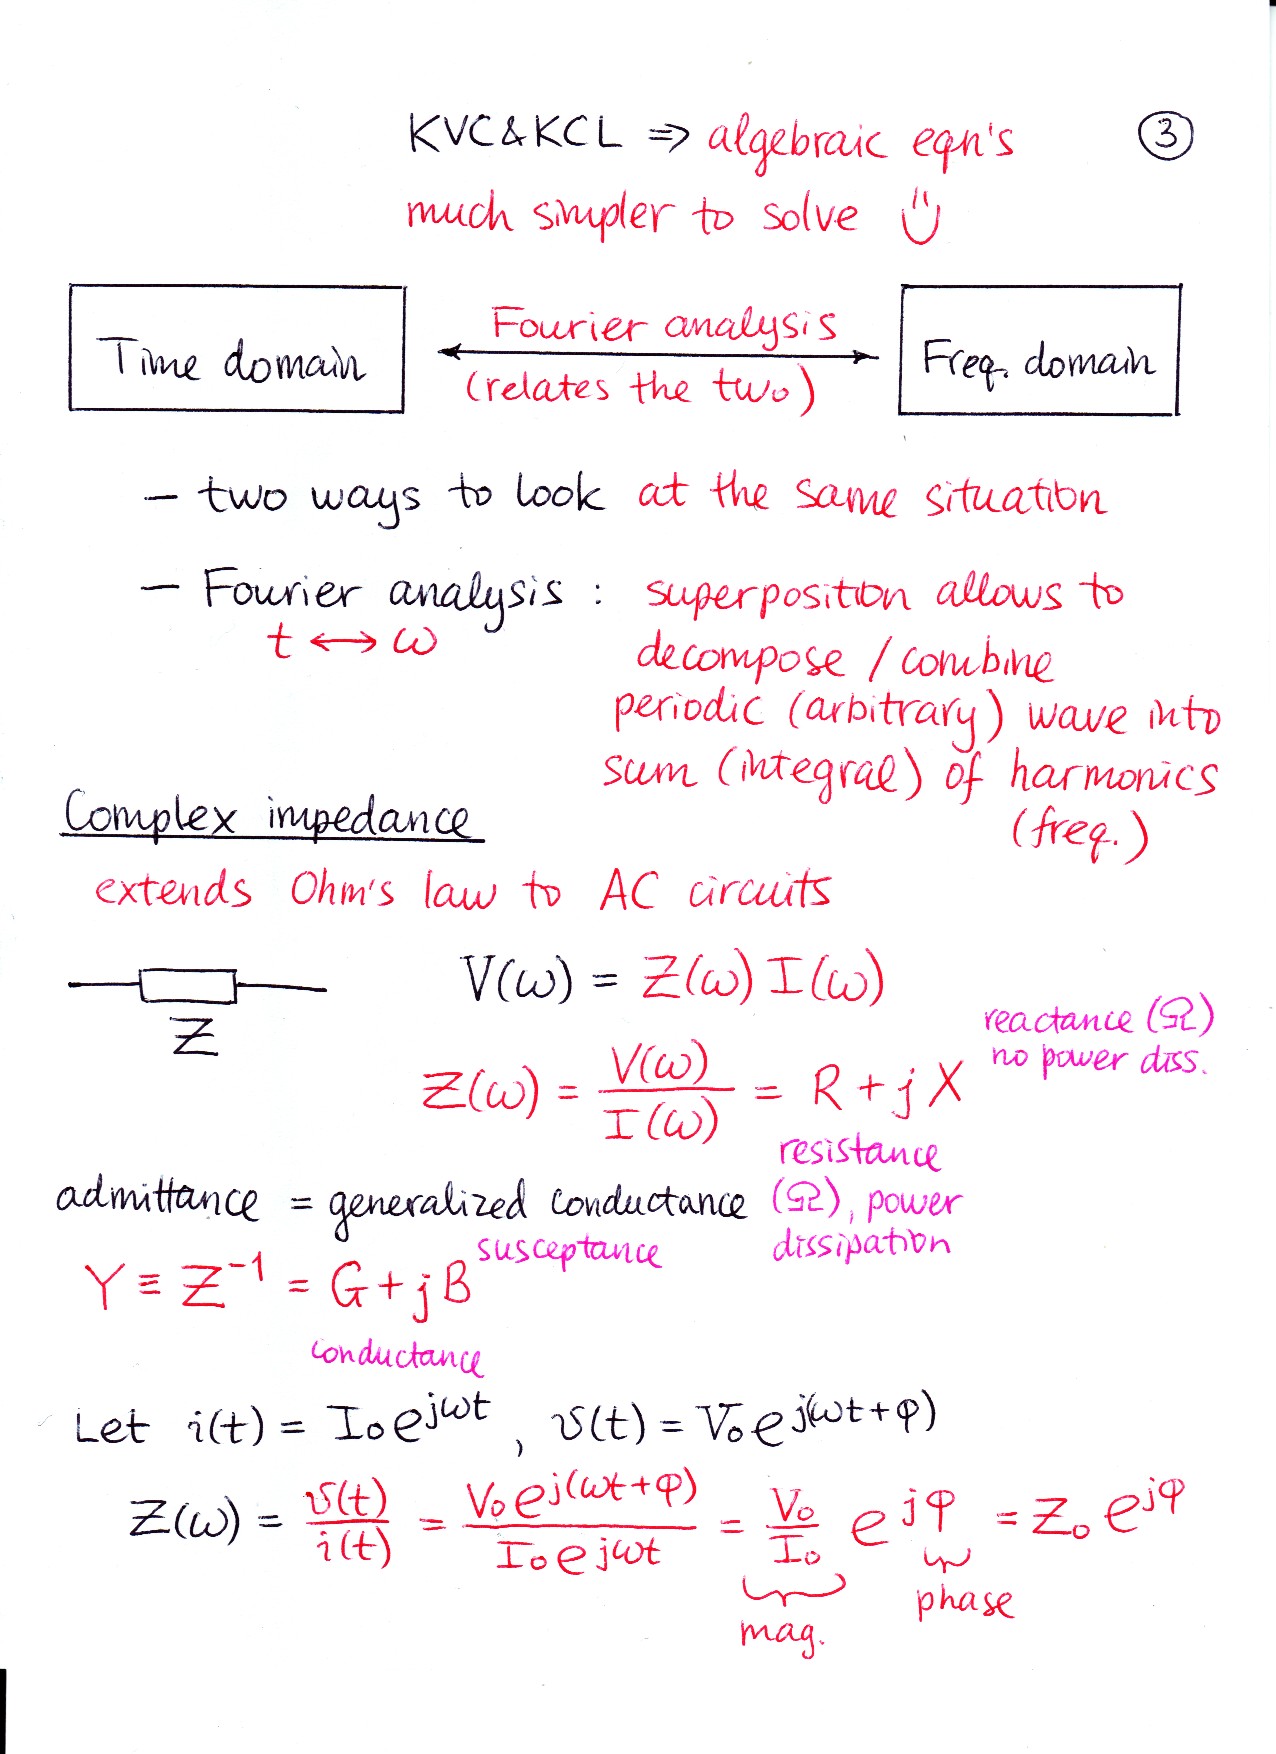 KVC&KCL ⇒ algebraic eqn's
③
much simpler to solve ت
Time domain
Fourier analysis
(relates the two)
Freq. domain
— two ways to look at the same situation
— Fourier analysis : superposition allows to
t ↔ ω
decompose / combine
periodic (arbitrary) wave into
sum (integral) of harmonics
(freq.)
Complex impedance
extends Ohm's law to AC circuits
Z
V(ω) = Z(ω) I(ω)
reactance (Ω)
no power diss.
Z(ω) = V(ω) / I(ω) = R + jX
resistance
(Ω), power
dissipation
admittance = generalized conductance
susceptance
Y ≡ Z⁻¹ = G + jB
conductance
Let i(t) = I₀ e^{jωt}, v(t) = V₀ e^{j(ωt+φ)}
Z(ω) = v(t) / i(t) = V₀ e^{j(ωt+φ)} / I₀ e^{jωt} = V₀ / I₀ e^{jφ} = Z₀ e^{jφ}
mag.
phase